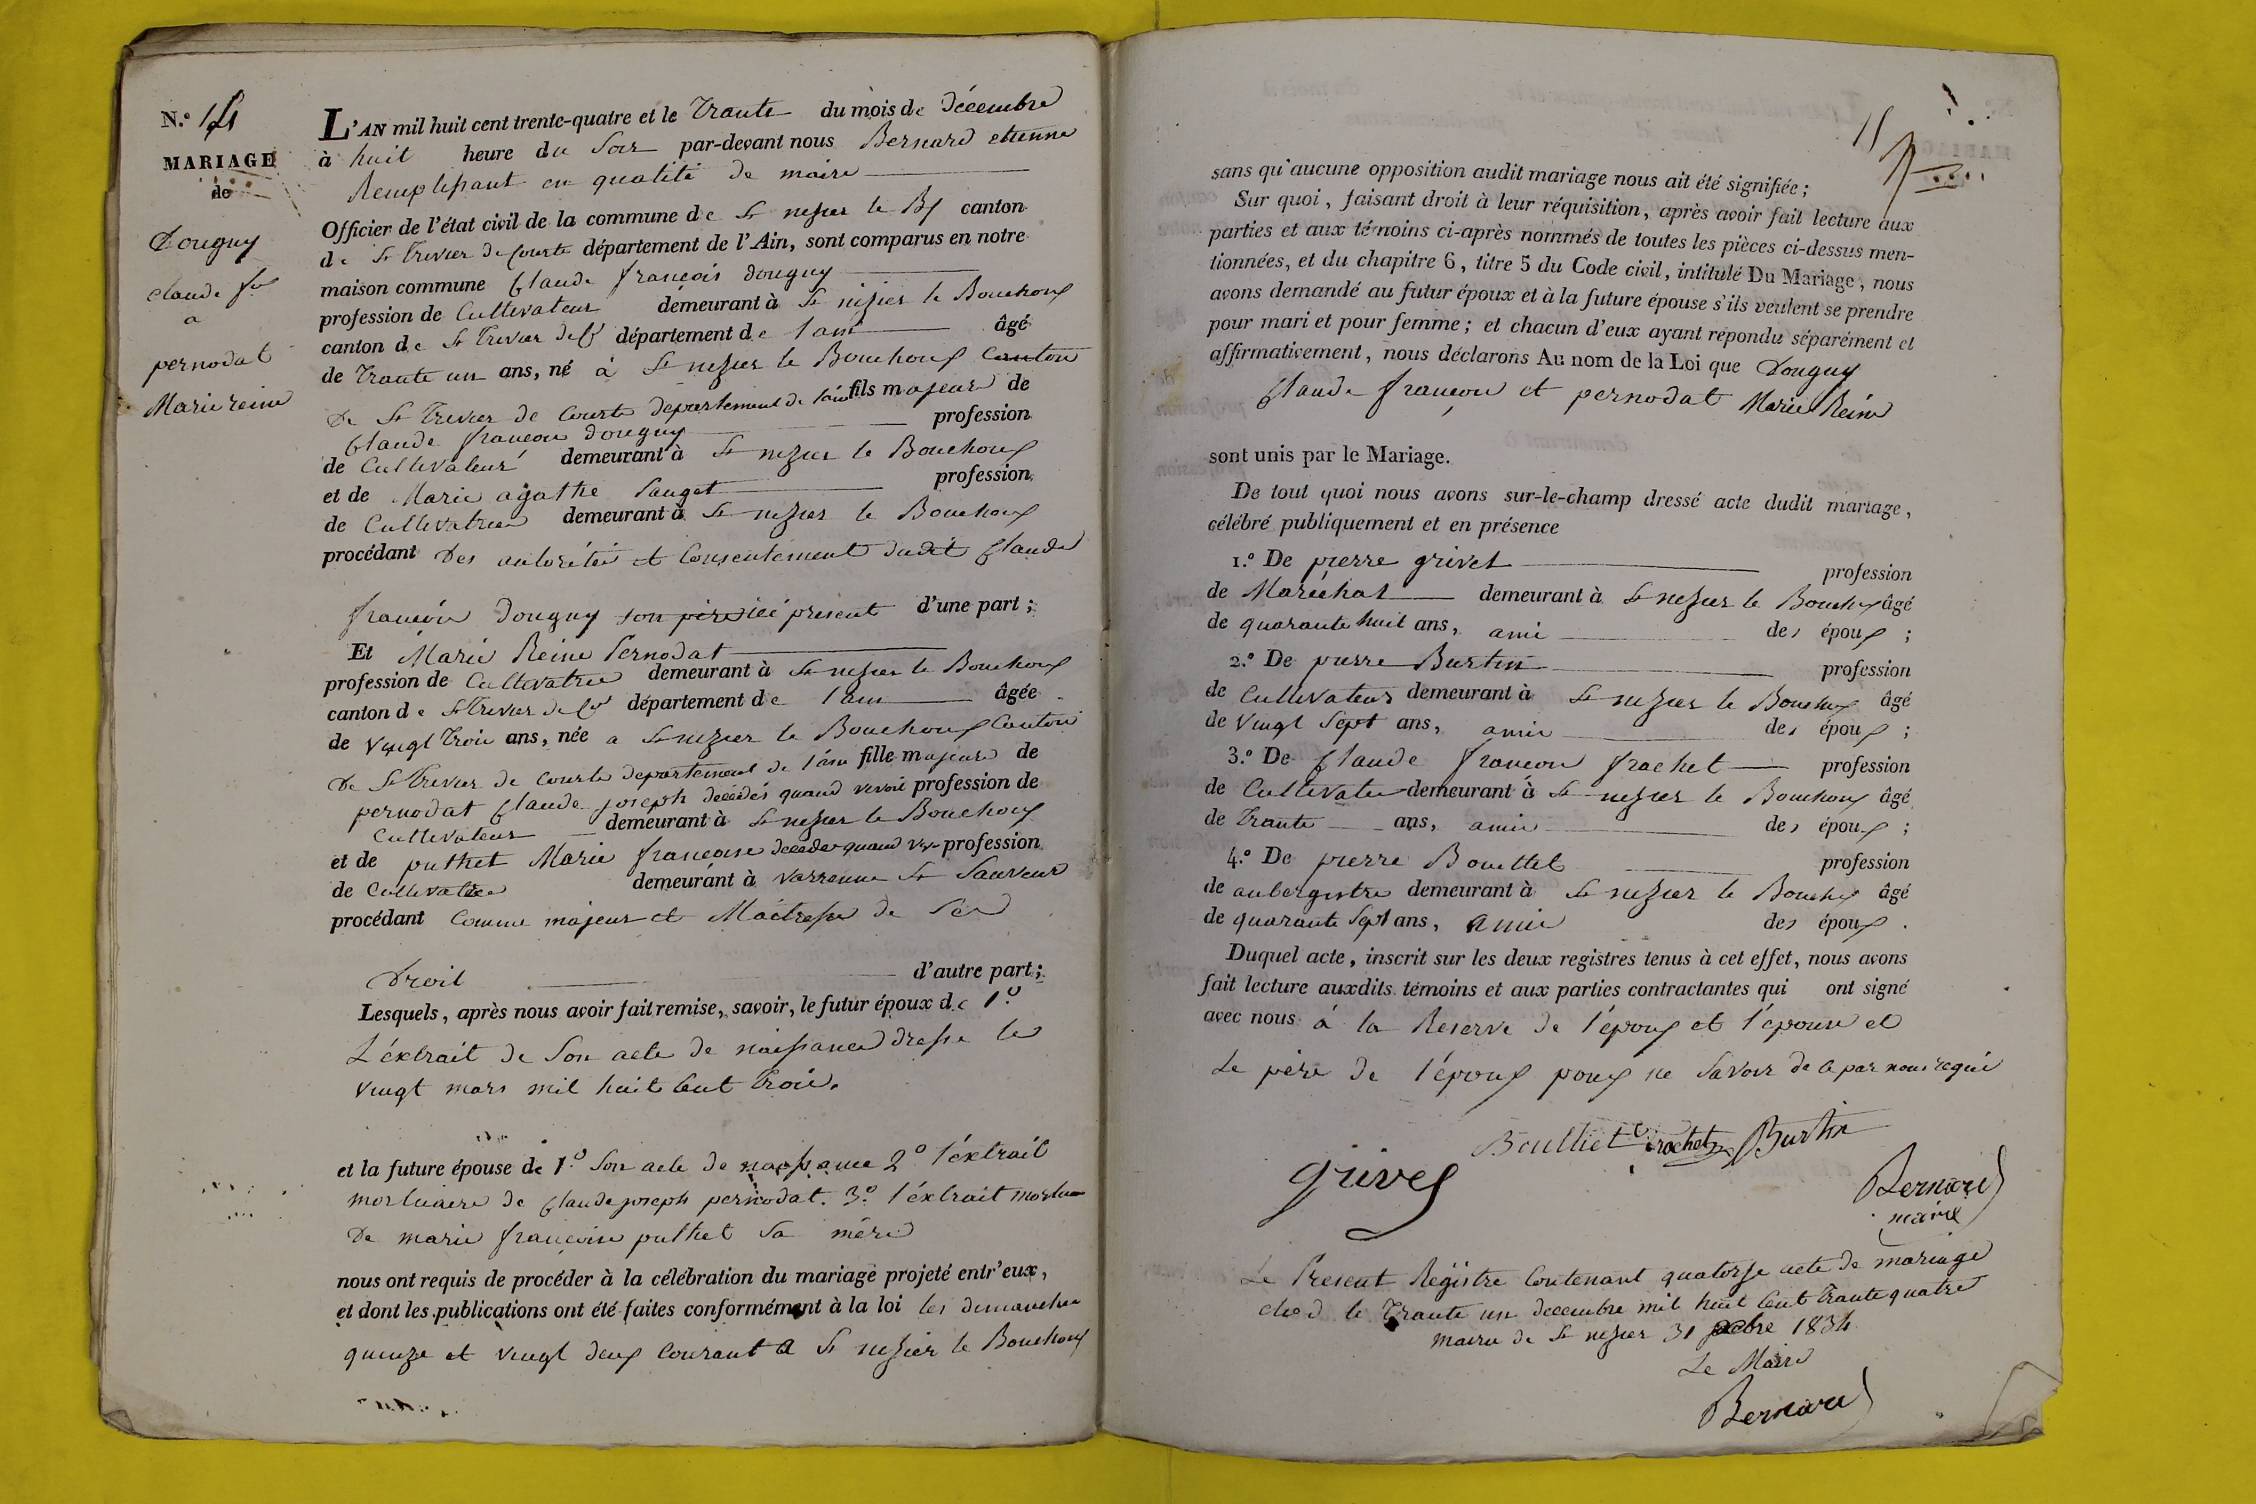 N.o 14
MARIAGE
de
Douguy
claude f.ois
a
pernodat
Marie reine
L'AN mil huit cent trente-quatre et le Trante du mois de décembre
à huit heure du Soir par-devant nous Bernard etienne
Remplissant en qualité de maire
Officier de l'état civil de la commune de St nizier le Bx canton
de St Trivier de Courte département de l'Ain, sont comparus en notre
maison commune Claude françois douguy
profession de Cultivateur demeurant à St nizier le Bouchoux
canton de St Trivier de C.t département de l'ain âgé
de Trante un ans, né à St nizier le Bouchoux Canton
De St Trivier de Courte departement de l'ain fils majeur de
Claude françois douguy profession
de Cultivateur demeurant à St nizier le Bouchoux
et de Marie agathe Sauget profession
de Cultivatrice demeurant à St nizier le Bouchoux
procédant Des autorités et Consentement dudit Claude
françois Douguy son père ici présent d'une part ;
Et Marie Reine Pernodat
profession de Cultivatrice demeurant à St nizier le Bouchoux
canton de St Trivier de C.t département de l'ain âgée
de vingt Trois ans, née a St nizier le Bouchoux Canton
De St Trivier de Courte departement de l'ain fille majeure de
pernodat Claude joseph décédés quand vivoit profession de
Cultivateur demeurant à St nizier le Bouchoux
et de puthet Marie francoise décédé quand viv profession
de Cultivatrice demeurant à varrenne St Sauveur
procédant Comme majeur et Maîtresse de Ses
Droit d'autre part ;
Lesquels, après nous avoir fait remise, savoir, le futur époux de 1.o
L'éxtrait de Son acte de naissance dressé le
vingt mars mil huit Cent Trois.
et la future épouse de 1.o Son acte de naissance 2.o l'éxtrait
mortuaire de Claude joseph pernodat. 3.o l'éxtrait mortu
De marie françoise puthet Sa mére
nous ont requis de procéder à la célébration du mariage projeté entr'eux,
et dont les publications ont été faites conformément à la loi les dimanches
quinze et vingt deux Courant a St nizier le Bouchoux
15
sans qu'aucune opposition audit mariage nous ait été signifiée ;
Sur quoi, faisant droit à leur réquisition, après avoir fait lecture aux
parties et aux témoins ci-après nommés de toutes les pièces ci-dessus men-
tionnées, et du chapitre 6, titre 5 du Code civil, intitulé Du Mariage, nous
avons demandé au futur époux et à la future épouse s'ils veulent se prendre
pour mari et pour femme ; et chacun d'eux ayant répondu séparément et
affirmativement, nous déclarons Au nom de la Loi que Douguy
Claude françois et pernodat Marie Reine
sont unis par le Mariage.
De tout quoi nous avons sur-le-champ dressé acte dudit mariage,
célébré publiquement et en présence
1.o De pierre grivet profession
de Maréchal demeurant à St nizier le Bouchoux âgé
de quarante huit ans, ami des époux ;
2.o De pierre Burtin profession
de Cultivateur demeurant à St nizier le Bouchoux âgé
de vingt Sept ans, amis des époux ;
3.o De Claude françois frachet profession
de Cultivateur demeurant à St nizier le Bouchoux âgé
de Trante ans, amis des époux ;
4.o De pierre Bouillet profession
de aubergistre demeurant à St nizier le Bouchoux âgé
de quarante Sept ans, Amis des époux .
Duquel acte, inscrit sur les deux registres tenus à cet effet, nous avons
fait lecture auxdits témoins et aux parties contractantes qui ont signé
avec nous à la Réserve de l'époux et l'épouse et
Le père de l'époux pour ne Savoir de ce par nous requis
Boulliet frochet Burtin
grivet
Bernard
maire
Le Present Régistre Contenant quatorze acte de mariage
clod le Trante un decembre mil huit Cent Trante quatre
Mairie de St nizier 31 xcbre 1834
Le Maire
Bernard